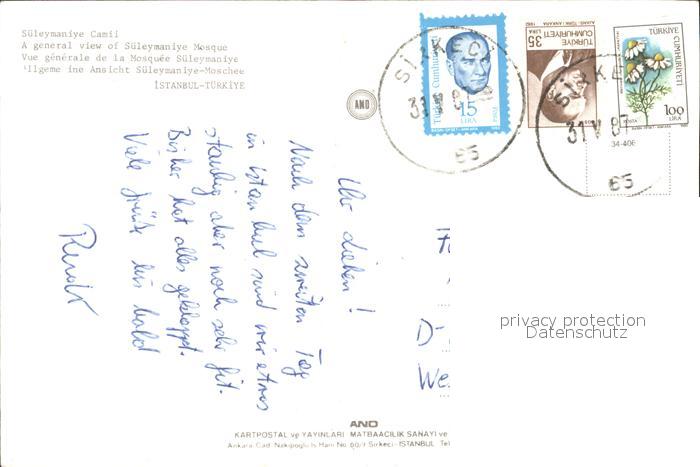 Süleymaniye Camii
A general view of Süleymaniye Mosque
Vue générale de la Mosquée Süleymaniye
'llgeme ine Ansicht Süleymaniye-Moschee
İSTANBUL-TÜRKİYE
AND
Türkiye Cumhuriyeti
15
LİRA
35
LİRA
TÜRKİYE
CUMHURİYETİ
TÜRKİYE
CUMHURİYETİ
100
LİRA
SİRKECİ
31 V 87
65
SİRKECİ
31 V 87
65
34-406
Ihr Lieben!
Nach dem zweiten Tag
in Istanbul sind wir etwas
staubig aber noch sehr fit.
Bisher hat alles geklappt.
Viele Grüße bis bald
D
We
privacy protection
Datenschutz
AND
KARTPOSTAL ve YAYINLARI MATBAACILIK SANAYİ ve
Ankara Cad. Nakipoğlu İş Hanı No. 60/7 Sirkeci-İSTANBUL Tel